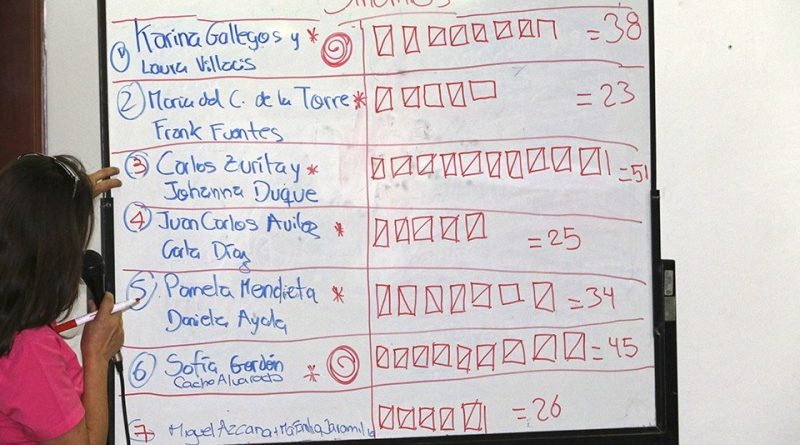 ① Karina Gallegos y * = 38
Laura Villacis
② Maria del C. de la Torre * = 23
Frank Fuentes
③ Carlos Zurita y * = 51
Johanna Duque
④ Juan Carlos Aviles * = 25
Carla Díaz
⑤ Pamela Mendieta * = 34
Daniela Ayala
⑥ Sofía Gordón * = 45
Cacho Alvarado
7 Miguel = 26